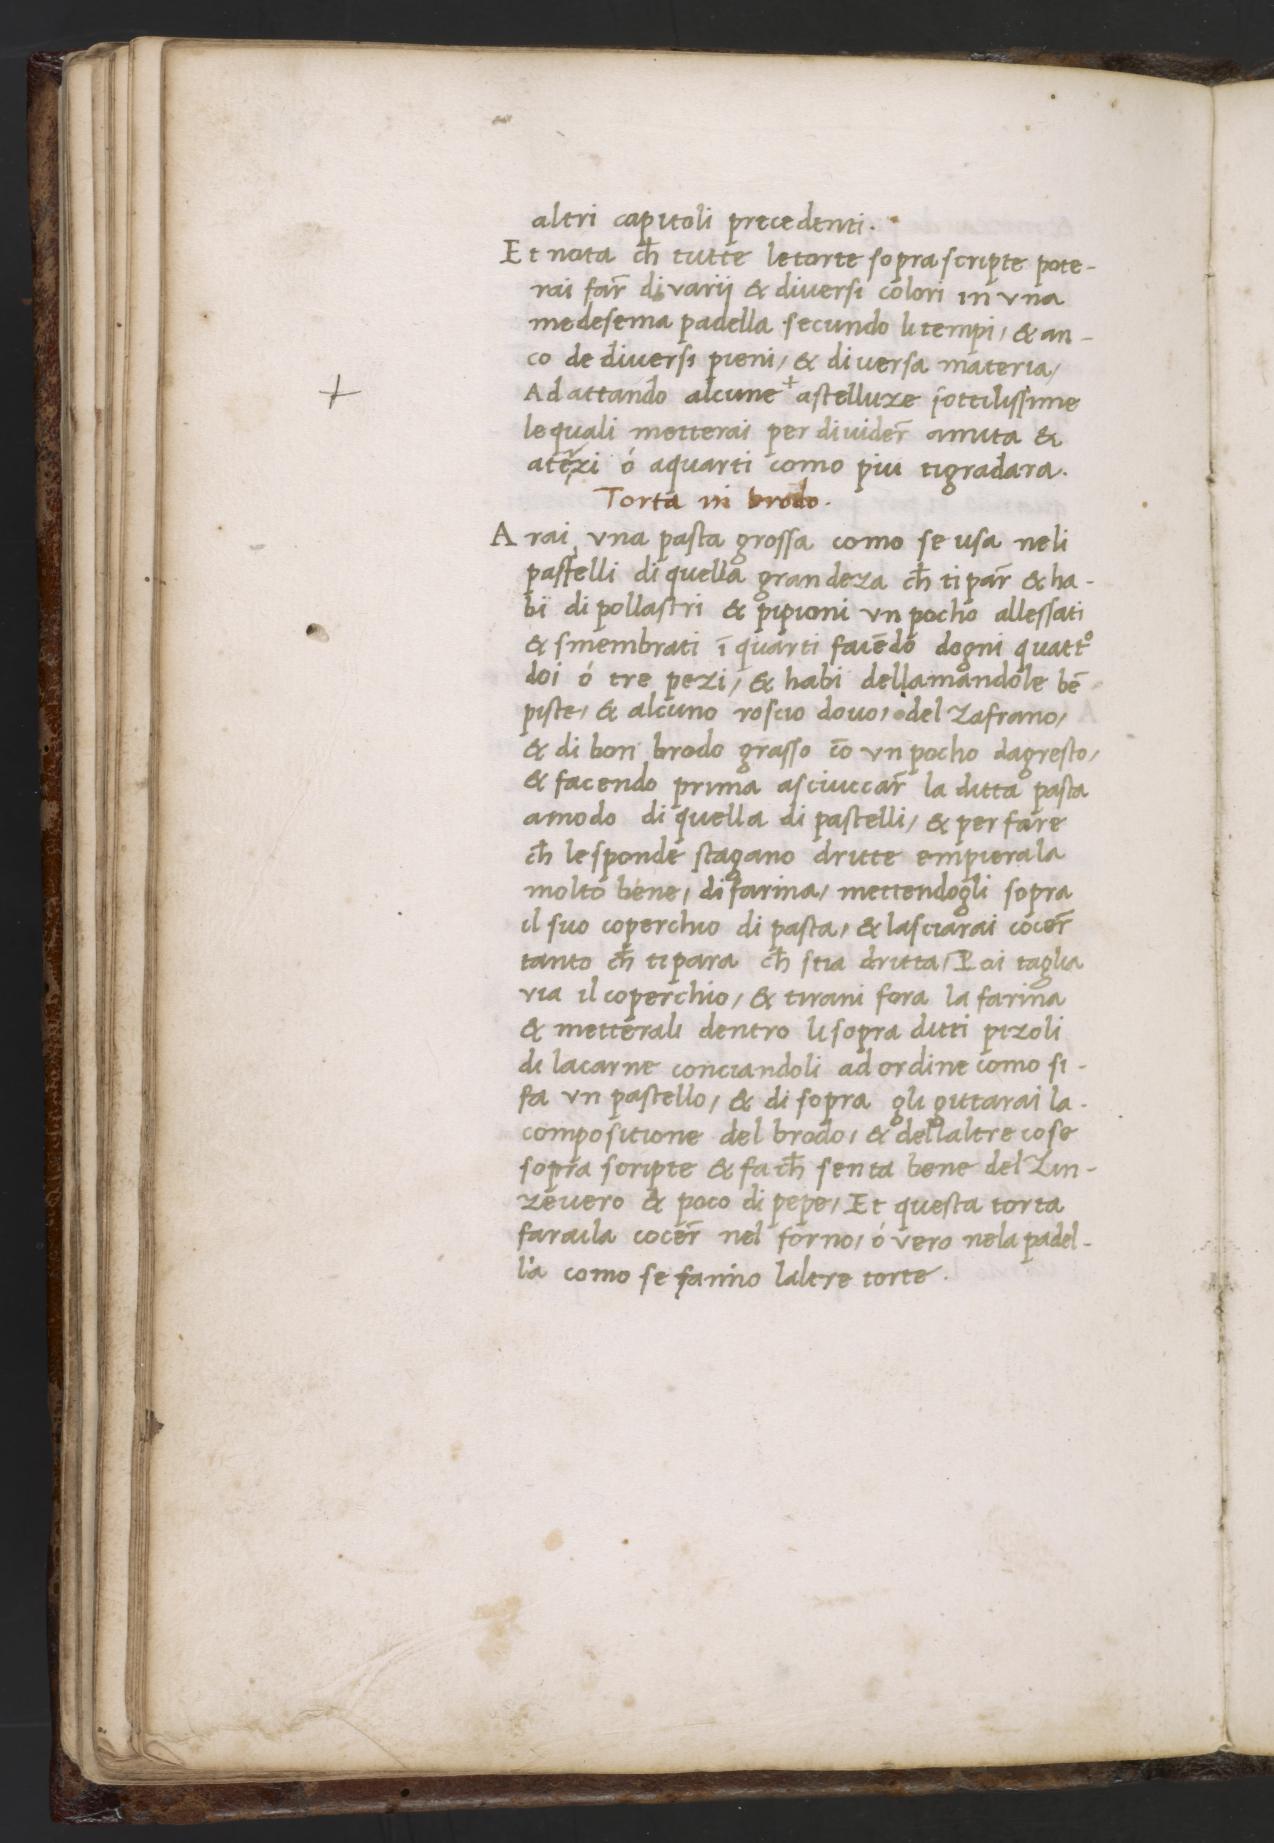 altri capituli precedenti.
Et nota ch̄ tutte le torte soprascripte pote-
rai far̄ di varij & diuersi colori in vna
medesema padella secundo li tempi, & an-
co de diuersi pieni, & diuersa materia,
Adattando alcune + astelluze sottilissime
le quali metterai per diuider̄ amita &
aterzi ó aquarti como piu tigradara.
Torta in brodo.
Arai, vna pasta grossa como se usa neli
pastelli di quella grandeza ch̄ ti par̄ & ha-
bï di pollastri & pipioni vn pocho allessati
& smembrati ī quarti faiēdo dogni quattº
doi ó tre pezi, & habi dellamandole bē
piste, & alcuno roscio douo, del Zafrano,
& di bon brodo grasso cō vn pocho dagresto,
& facendo prima asciuccar̄ la ditta pasta
amodo di quella di pastelli, & per fare
ch̄ le sponde stagano dritte empierala
molto bene, di farina, mettendogli sopra
il suo coperchio di pasta, & lasciarai cocer̄
tanto ch̄ ti para ch̄ stia dritta, Poi taglia
via il coperchio, & tirani fora la farina
& metterali dentro li sopra ditti pizoli
di lacarne conciandoli ad ordine como si-
fa vn pastello, & di sopra gli gittarai la-
compositione del brodo, & dellaltre cose
sopra scripte & fa ch̄ senta bene del Zin-
zeuero & poco di pepe, Et questa torta
faraila cocer̄ nel forno, ó vero nela padel-
la como se fanno laltre torte.
+